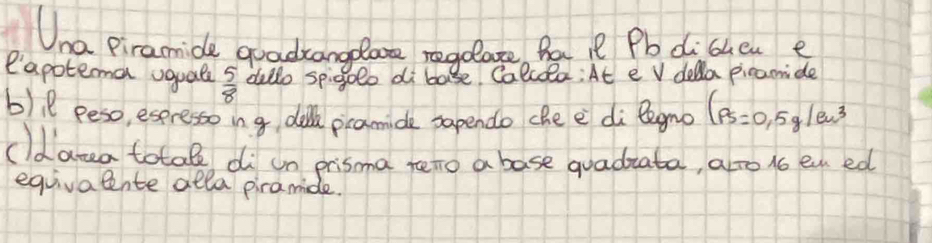 Una piramide quadrangolare regolare ha il Pb di 64cm e
l'apotema uguale 5/8 dello spigolo di base. Calcola: At e V della piramide
b) il peso, espresso in g, della piramide sapendo che è di legno (ps=0,5g/cm³
c) L'area totale di un prisma retto a base quadrata, alto 16 cm ed
equivalente alla piramide.